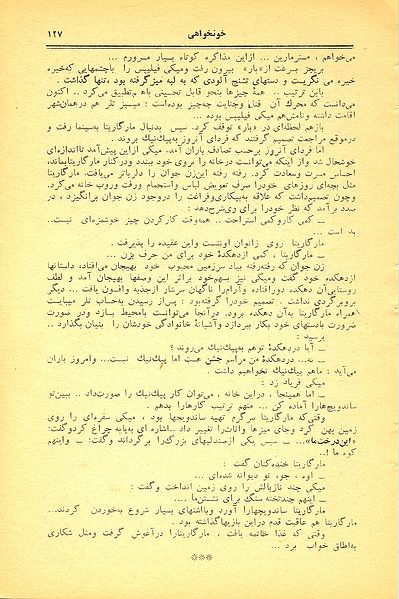 خونخواهی
۱۲۷
میخواهم ، مسترمارین ... ازاین مذاکره کوتاه بسیار مسرورم ...
بریجز بسرعت از «بار» بیرون رفت ومیکی فیلیپس را باچشمهایی که خیره
خیره می نگریست و دستهای تشنج آلودی که به لبه میز گرفته بود ، تنها گذاشت .
باین ترتیب .. همهٔ چیزها بنحو قابل تحسینی باهم تطبیق میکرد .. اکنون
میدانست که محرك آن قتل وجنایت چه‌چیز بوده‌است : میسیز تلر هم درهمان‌شهر
اقامت داشته و نامش‌هم میکی فیلیپس بوده ...
بازهم لحظه‌ای در «بار» توقف کرد. سپس بدنبال مارگاریتا به‌سینما رفت و
درموقع مراجعت تصمیم گرفتند که فردای آنروز به‌پیك‌نیك بروند .
اما فردای آنروز برحسب تصادف باران آمد، میکی ازاین پیش‌آمد تااندازه‌ای
خوشحال شد وازاینکه میتوانست درخانه را بروی خود ببندد ودرکنار مارگاریتابماند،
احساس مسرت وسعادت کرد. رفته رفته این‌زن جوان را دلرباتر می‌یافت. مارگاریتا
مثل بچه‌ای روزهای خودرا صرف تعویض لباس واستحمام ورفت وروب خانه میکرد.
وچون تصمیم‌داشت که علاقه به‌بیکاری‌وفراغت را دروجود زن جوان برانگیزد ، در
صدد برآمد که نظر خودرا برای وی‌شرح‌دهد :
ــ کمی کاروکمی استراحت .. همه‌وقت کارکردن چیز خوشمزه‌ای نیست..
بد است ...
مارگاریتا روی زانوان اونشست واین عقیده را پذیرفت .
ــ مارگاریتا ، کمی ازدهکدهٔ خود برای من حرف بزن ...
زن جوان که رفته‌رفته بیاد سرزمین محبوب خود بهیجان می‌افتاد، داستانها
ازدهکده خود گفت ومیکی نیز بسهم‌خود براثر این وصفها بهیجان آمد و لطف
روستایی‌آن دهکده دورافتاده وآرام‌را ناگهان سرشار ازجذبه وافسون یافت .. دیگر
بروبرگردی نداشت . تصمیم خودرا گرفته‌بود : پس‌از رسیدن به‌حساب تلر میبایست
همراه مارگاریتا به‌آن دهکده برود. درآنجا می‌توانست بامحیط بسازد ودر صورت
ضرورت بادستهای خود بکار بپردازد وآشیانهٔ خانوادگی خودشان را بنیان بگذارد ..
پرسید :
ــ آیا دردهکدهٔ توهم به‌پیك‌نیك می‌روند ؟
ــ نه... دردهکدهٔ من مراسم جشن هست اما پیك‌نیك نیست... وامروز باران
می‌آید : ماهم پیك‌نیك نخواهیم داشت .
میکی فریاد زد :
ــ اما همینجا ، دراین خانه ، می‌توان کار پیك‌نیك را صورت‌داد .. ببین‌تو
ساندویچهارا آماده کن ... منهم ترتیب کارهارا بدهم .
وقتی‌که مارگاریتا سرگرم تهیه ساندویچها بود ، میکی سفره‌ای را روی
زمین پهن کرد وجای میزها واثاث‌را تغییر داد ..اشاره ای به‌پایه چراغ کردوگفت:
«این‌درخت‌ما»... ــ سپس یکی ازصندلیهای بزرگ‌را برگرداند وگفت: ــ واینهم
کوه ما !..
مارگاریتا خنده‌کنان گفت :
ــ اوه ، جو، تو دیوانه شده‌ای ...
میکی چند نازبالش را روی زمین انداخت وگفت :
ــ اینهم چندتخته سنگ برای نشستن‌ما ....
مارگاریتا ساندویچهارا آورد وبااشتهای بسیار شروع به‌خوردن کردند...
مارگاریتا هم عاقبت قدم دراین بازیها گذاشته بود .
وقتی که غذا خاتمه یافت ، مارگاریتارا درآغوش گرفت ومثل شکاری
به‌اطاق خواب برد ...
***